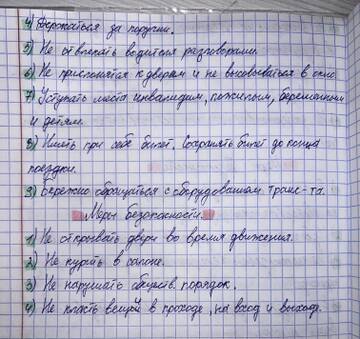 4) Держаться за поручни.
5) Не отвлекать водителя разговорами.
6) Не прислоняться к дверям и не высовываться в окно
7) Уступать места инвалидам, пожилым, беременным
и детям.
8) Иметь при себе билет. Сохранять билет до конца
поездки.
9) Бережно обращаться с оборудованием транс-та.
Меры безопасности.
1) Не открывать двери во время движения.
2) Не курить в салоне.
3) Не нарушать обществ. порядок.
4) Не класть вещей в проходе, на вход и выход.